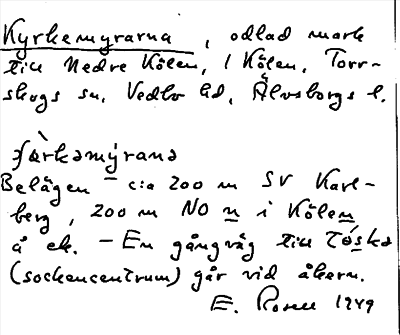 Kyrkemyrarna, odlad mark
till Nedre Kölen, 1 Kölen, Torr-
skogs sn, Vedbo hd, Älvsborgs l.
Belägen c:a 200 m SV Karl-
berg, 200 m NO n i Kölen
å ek. – En gångväg till Töska
(sockencentrum) går vid åkern.
E. Rosell 1949